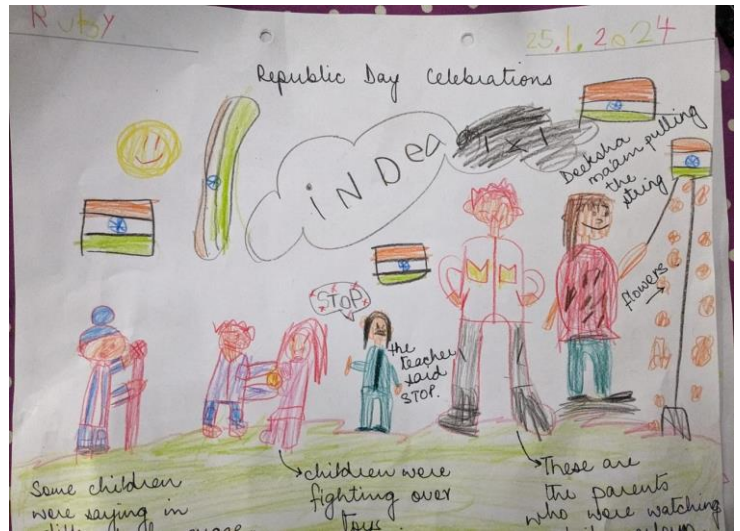 Rutvy
25.1.2024
Republic Day Celebrations
iNDea
Deeksha
malam pulling
the
string
STOP
the
teacher
said
STOP.
flowers
Some children
were saying in
children were
fighting over
toys
These are
the parents
who were watching